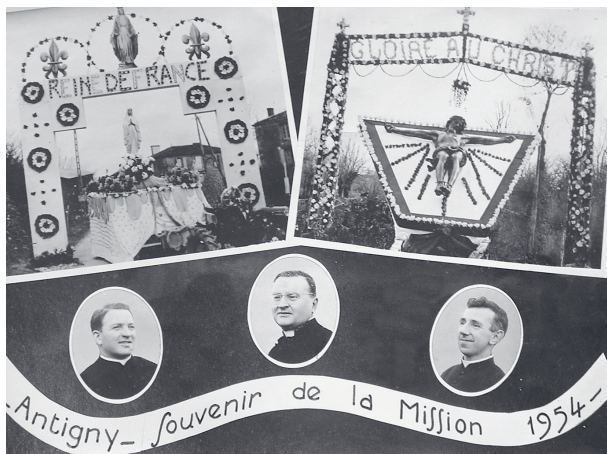 REINE DE FRANCE
GLOIRE AU CHRIST
-Antigny- Souvenir de la Mission 1954-